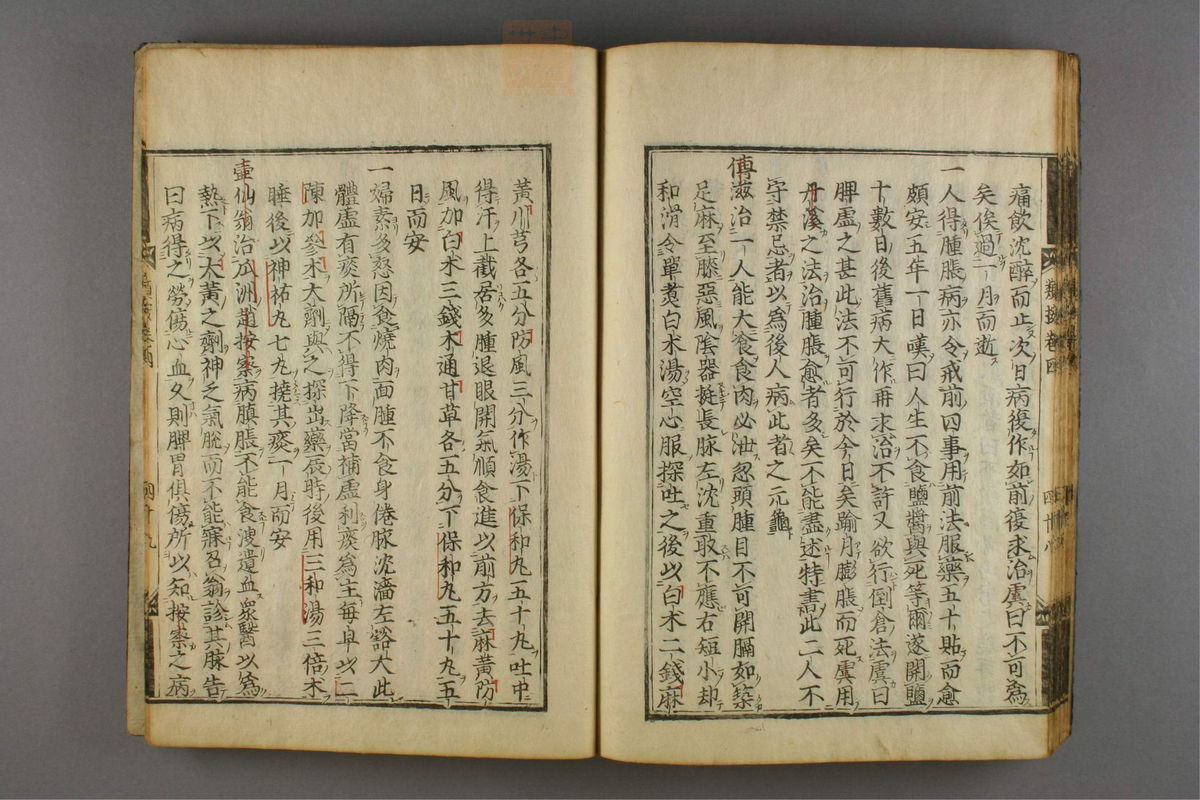 痛飲沈醉而止次日病復作如前復求治虞曰不可為
矣俟過一月而逝
一人得腫脹病亦令戒前四事用前法服藥五十貼而愈
頗安五年一日嘆曰人生不食鹽醬與死等爾遂開鹽
十數日後舊病大作再求治不許又欲行倒倉法虞曰
脾虛之甚此法不可行於今日矣踰月膨脹而死虞用
丹溪之法治腫脹愈者多矣不能盡述特書此二人不
守禁忌者以為後人病此者之元龜
傅滋治一人能大食肉必泄忽頭腫目不可開膈如築
足麻至膝惡風陰器挺長脉左沈重取不應右短小却
和滑令單煑白朮湯空心服探吐之後以白朮二錢麻
類按卷四
四十八
黃川芎各五分防風三分作湯下保和丸五十丸吐中
得汗上截居多腫退眼開氣順食進以前方去麻黃防
風加白朮三錢木通甘草各五分下保和丸五十丸五
日而安
一婦素多怒因食燒肉面腫不食身倦脉沈濇左豁大此
體虛有痰所隔不得下降當補虛利痰為主每早以二
陳加參朮大劑與之探出藥辰時後用三和湯三倍朮
睡後以神祐丸七丸撓其痰一月而安
壺仙翁治瓜洲趙按察病䐜脹不能食溲遺血衆醫以為
熱下以大黃之劑神乏氣脫而不能寐召翁診其脉告
曰病得之勞傷心血久則脾胃俱傷所以知按察之病
四十九